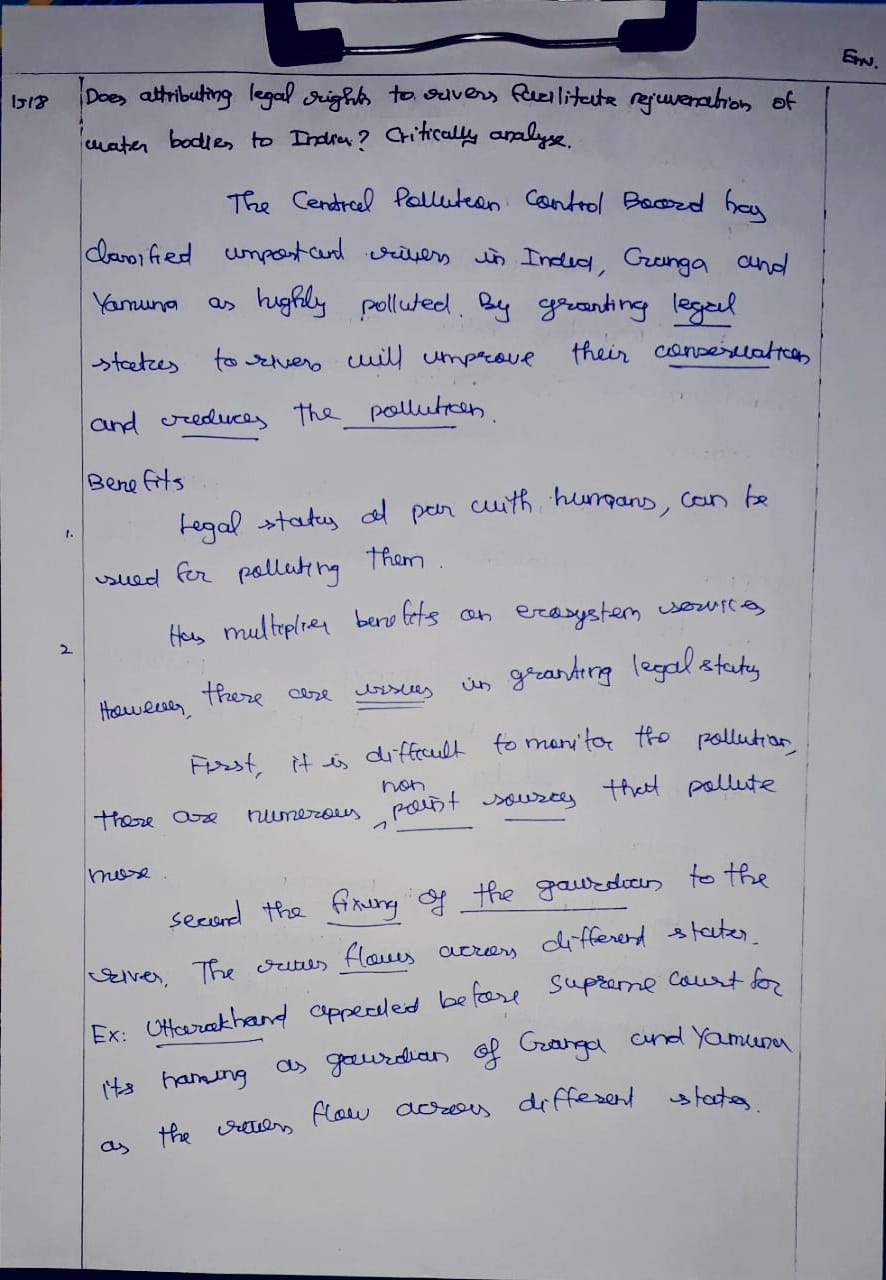 Env.
15/8 Does attributing legal rights to rivers facilitate rejuvenation of
water bodies to India? Critically analyse.
The Central Pollution Control Board has
classified important rivers in India, Ganga and
Yamuna as highly polluted. By granting legal
status to rivers will improve their conservation
and reduces the pollution.
Benefits
1. Legal status at par with humans, can be
sued for polluting them.
2 Has multiplier benefits on ecosystem services
However, there are issues in granting legal status
First, it is difficult to monitor the pollution,
non
there are numerous ^ point sources that pollute
more.
Second the fixing of the gaurdian to the
river. The rivers flows across different states.
Ex: Uttarakhand appealed before Supreme Court for
its naming as gaurdian of Ganga and Yamuna
as the rivers flow across different states.